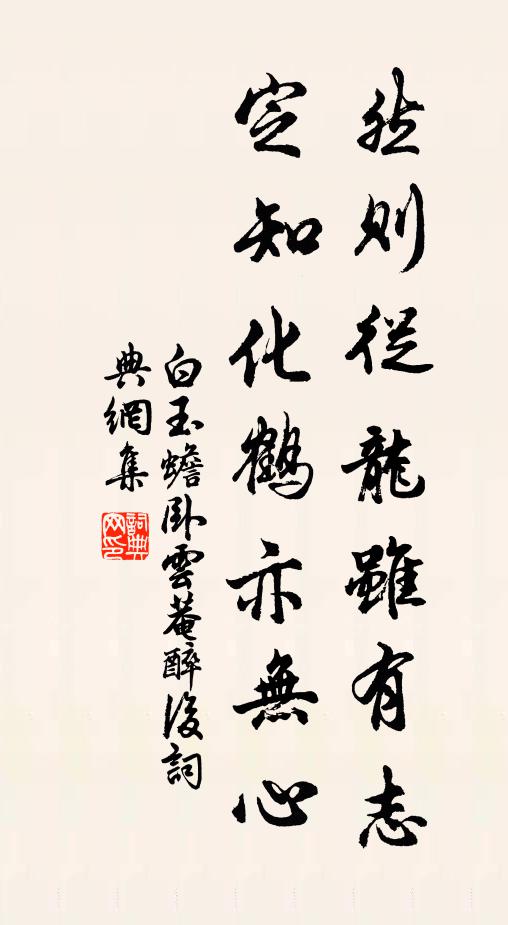 然則從龍雖有志
定知化鶴亦無心
白玉蟾臥雲菴醉後詞
典網集
詞典
網印